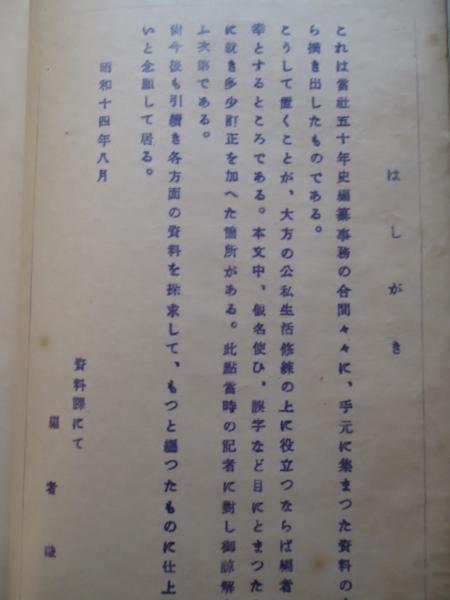 はしがき
これは當社五十年史編纂事務の合間々々に、手元に集まつた資料の
ら摘き出したものである。
こうして置くことが、大方の公私生活修練の上に役立つならば編者
幸とするところである。本文中、假名使ひ、誤字など目にとまつた
に就き多少訂正を加へた箇所がある。此點當時の記者に對し御諒解
ふ次第である。
尙今後も引續き各方面の資料を探求して、もつと纒つたものに仕上
いと念願して居る。
昭和十四年八月
資料課にて
編者